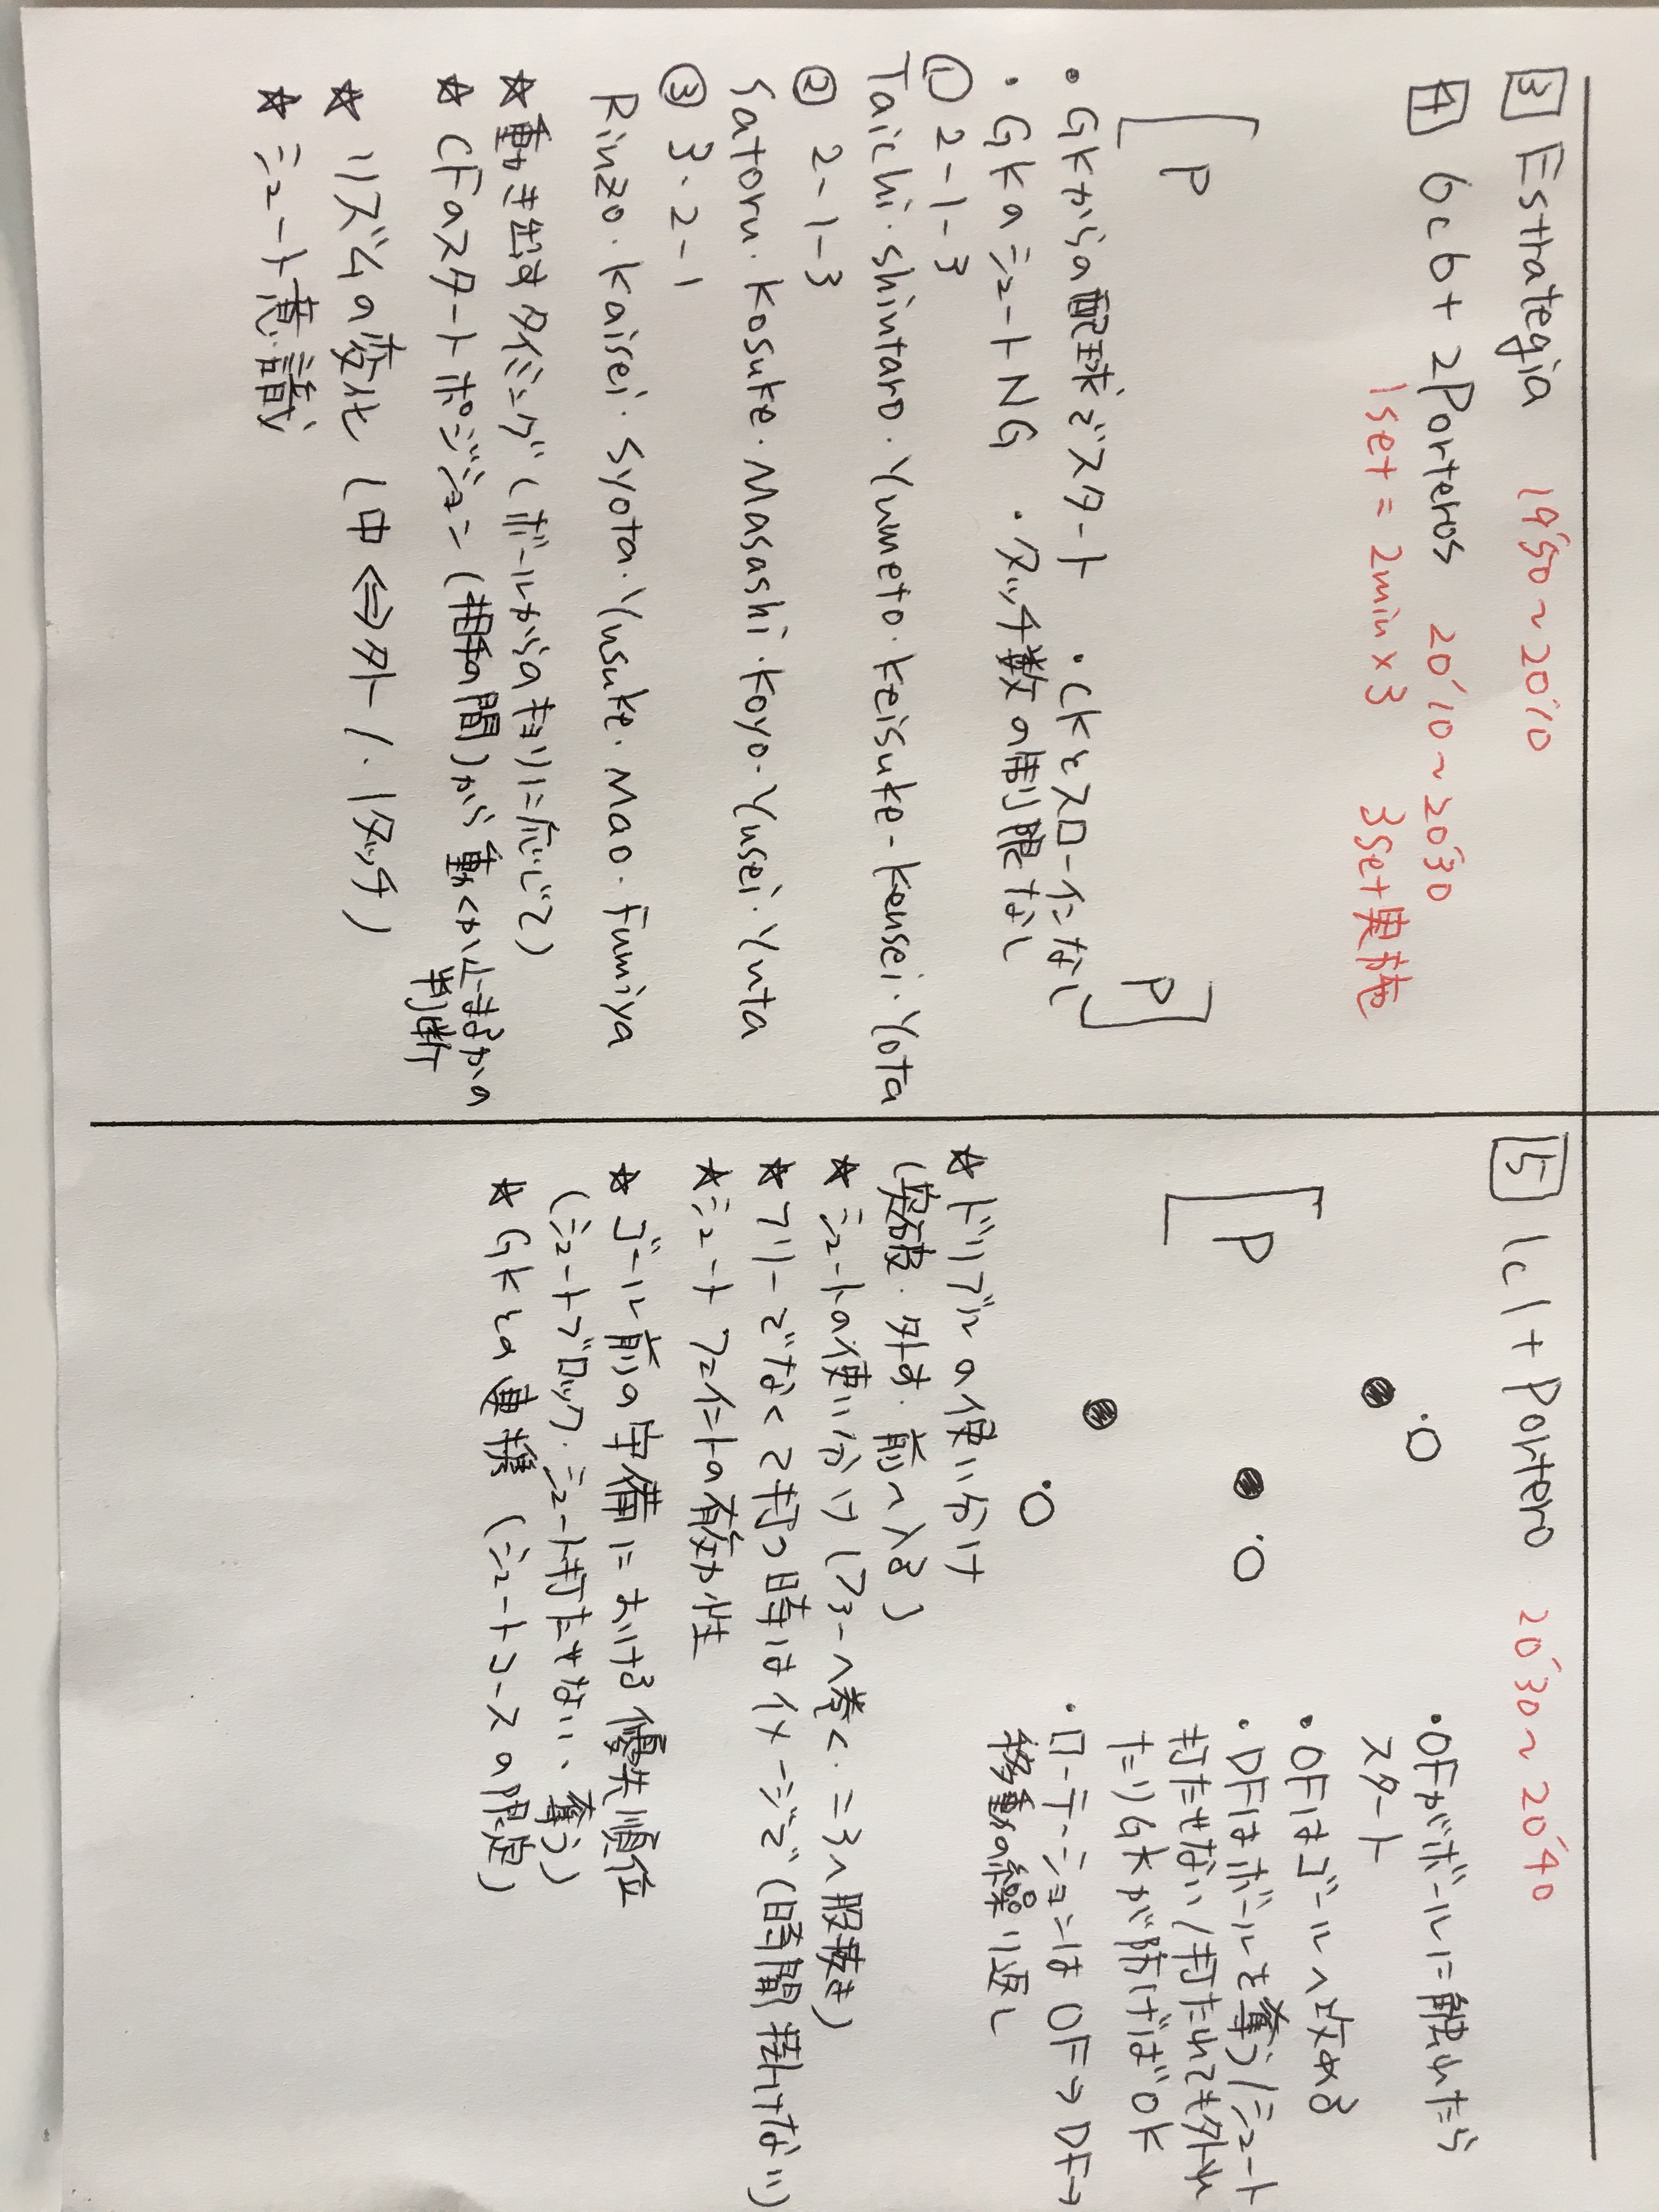 3 Estrategia 19'50~20'10
4 6c6+2Porteros 20'10~20'30
1set=2min×3 3set実施
P P
・GKからの配球でスタート ・CKとスローインなし
・GKのシュートNG ・タッチ数の制限なし
① 2-1-3
Taichi・Shintaro・Yumeto・Keisuke-Kensei・Yota
② 2-1-3
Satoru・Kosuke・Masashi・Koyo・Yusei・Yuta
③ 3・2-1
Rinzo・Kaisei・Syota・Yusuke・Mao・Fumiya
☆動き出すタイミング(ボールからのキョリに応じて)
☆CFのスタートポジション(相手の間)から動くか止まるかの
判断
☆リズムの変化(中⇔外/・1タッチ)
☆シュート意識
5 1c1+Portero 20'30~20'40
・OFがボールに触れたら
スタート
・OFはゴールへ攻める
・DFはボールを奪う/シュート
打たせない/打たれても外れ
たりGKが防げばOK
・ローテーションはOF→DF→
移動の繰り返し
P
☆ドリブルの使い分け
(突破・外す・前へ入る)
☆シュートの使い分け(ファーへ巻く・ニアへ股抜き)
☆フリーでなくて打つ時はイメージで(時間掛けない)
☆シュートフェイントの有効性
☆ゴール前の守備における優先順位
(シュートブロック・シュート打たせない、奪う)
☆GKとの連携(シュートコースの限定)